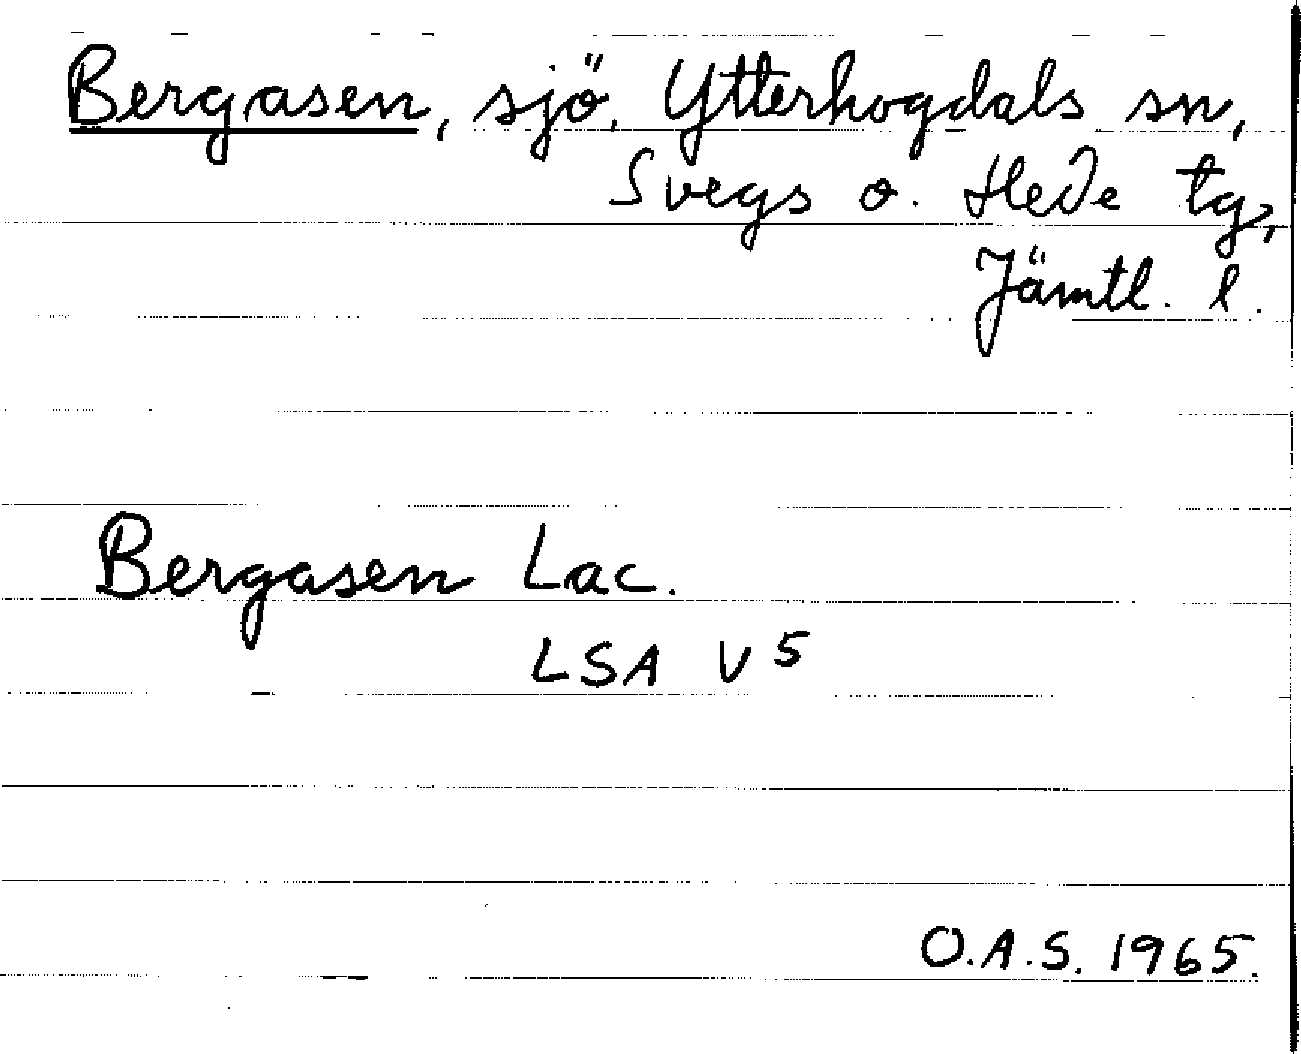 Bergasen, sjö. Ytterhogdals sn,
Svegs o. Hede tg,
Jämtl. l.
Bergasen Lac.
LSA V 5
O.A.S. 1965.